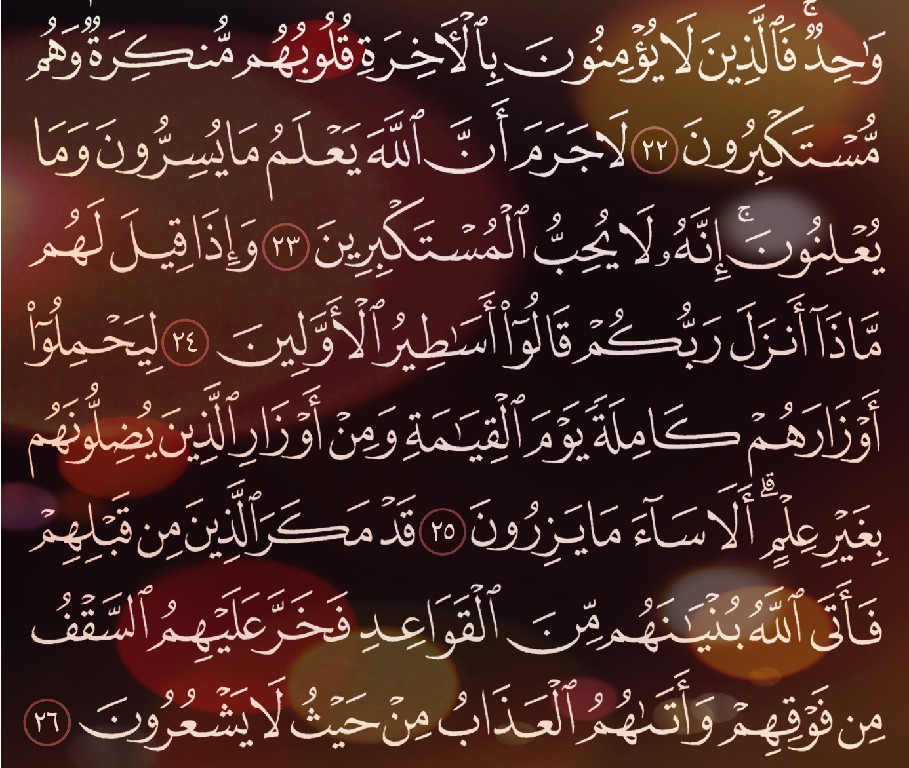 وَٰحِدٌۚ فَٱلَّذِينَ لَا يُؤۡمِنُونَ بِٱلۡأٓخِرَةِ قُلُوبُهُم مُّنكِرَةٌ وَهُم
مُّسۡتَكۡبِرُونَ ٢٢ لَا جَرَمَ أَنَّ ٱللَّهَ يَعۡلَمُ مَا يُسِرُّونَ وَمَا
يُعۡلِنُونَۚ إِنَّهُۥ لَا يُحِبُّ ٱلۡمُسۡتَكۡبِرِينَ ٢٣ وَإِذَا قِيلَ لَهُم
مَّاذَآ أَنزَلَ رَبُّكُمۡ قَالُوٓاْ أَسَٰطِيرُ ٱلۡأَوَّلِينَ ٢٤ لِيَحۡمِلُوٓاْ
أَوۡزَارَهُمۡ كَامِلَةٗ يَوۡمَ ٱلۡقِيَٰمَةِ وَمِنۡ أَوۡزَارِ ٱلَّذِينَ يُضِلُّونَهُم
بِغَيۡرِ عِلۡمٍۗ أَلَا سَآءَ مَا يَزِرُونَ ٢٥ قَدۡ مَكَرَ ٱلَّذِينَ مِن قَبۡلِهِمۡ
فَأَتَى ٱللَّهُ بُنۡيَٰنَهُم مِّنَ ٱلۡقَوَاعِدِ فَخَرَّ عَلَيۡهِمُ ٱلسَّقۡفُ
مِن فَوۡقِهِمۡ وَأَتَىٰهُمُ ٱلۡعَذَابُ مِنۡ حَيۡثُ لَا يَشۡعُرُونَ ٢٦